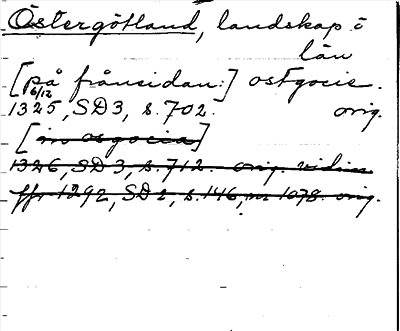 Östergötland, landskap o
län
[på frånsidan:] ostgocie.
6/12
1325, SD3, s. 702. orig.
[in osgocia]
1326, SD3, s. 712. orig. vidim
ffr 1292, SD2, s. 146, nr 1078. orig.